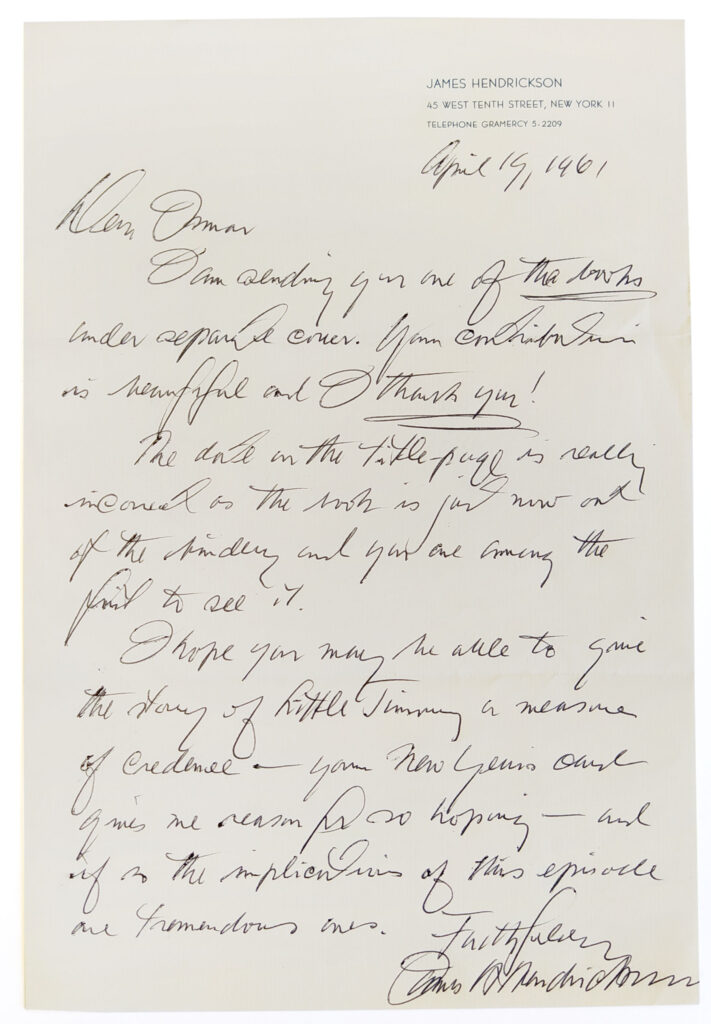 JAMES HENDRICKSON
45 WEST TENTH STREET, NEW YORK 11
TELEPHONE GRAMERCY 5-2209
April 19, 1961
Dear Osmar
I am sending you one of the books
under separate cover. Your contribution
is beautiful and I thank you!
The date on the title-page is really
incorrect as the book is just now out
of the bindery and you are among the
first to see it.
I hope you may be able to give
the story of Little Jimmy a measure
of credence — your New Years card
gives me reason for so hoping — and
if so the implications of this episode
are tremendous ones.
Faithfully
James Hendrickson